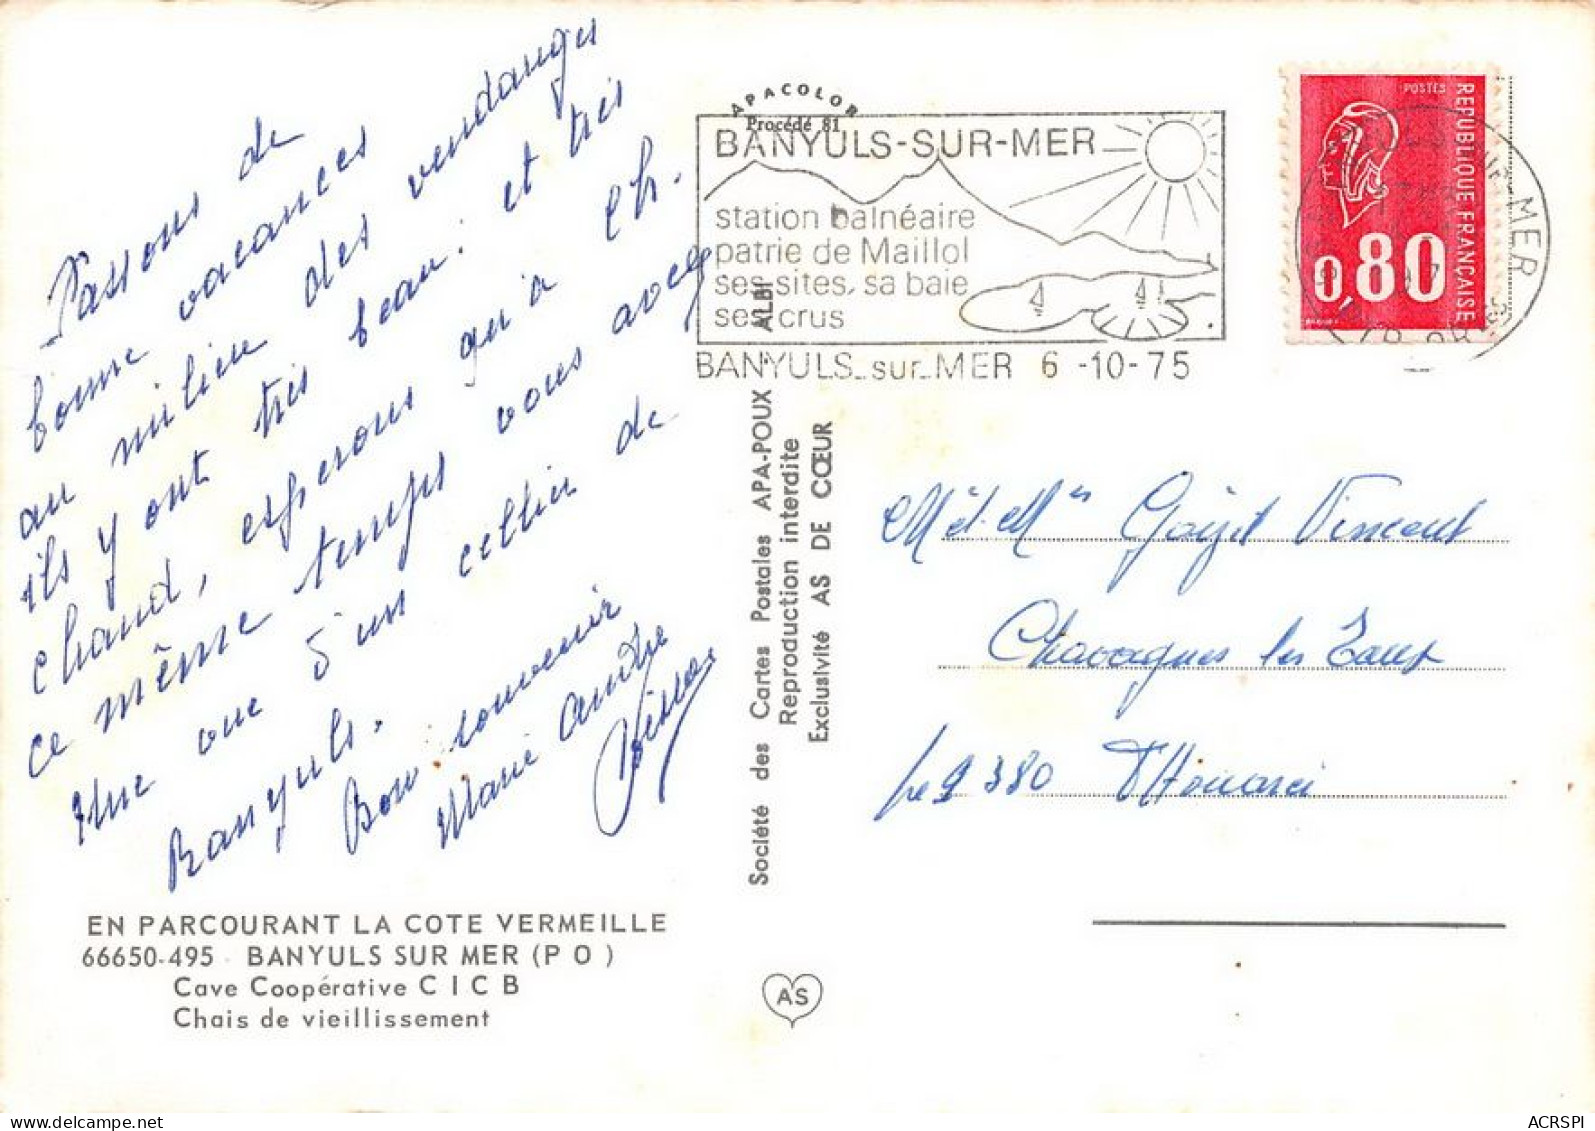 Passons de
bonne vacances
au milieu des vendanges
ils y ont très beau. et très
chaud, esperons qu'à Ch.
ce même temps vous avez
que d'un cellier de
Banyuls.
Bon souvenir
Marie Andre
EN PARCOURANT LA COTE VERMEILLE
66650-495 - BANYULS SUR MER (P O)
Cave Coopérative C I C B
Chais de vieillissement
Société des Cartes Postales APA-POUX - ALBI
Reproduction interdite
Exclusivité AS DE CŒUR
AS
APACOLOR
Procédé 81
BANYULS-SUR-MER
station balnéaire
patrie de Maillol
ses sites, sa baie
ses crus
BANYULS sur MER 6 -10-75
POSTES
REPUBLIQUE FRANÇAISE
0,80
sur MER
M et Mme Vincent
Chavagnes les Eaux
49380 Thouarcé
ACRSPI